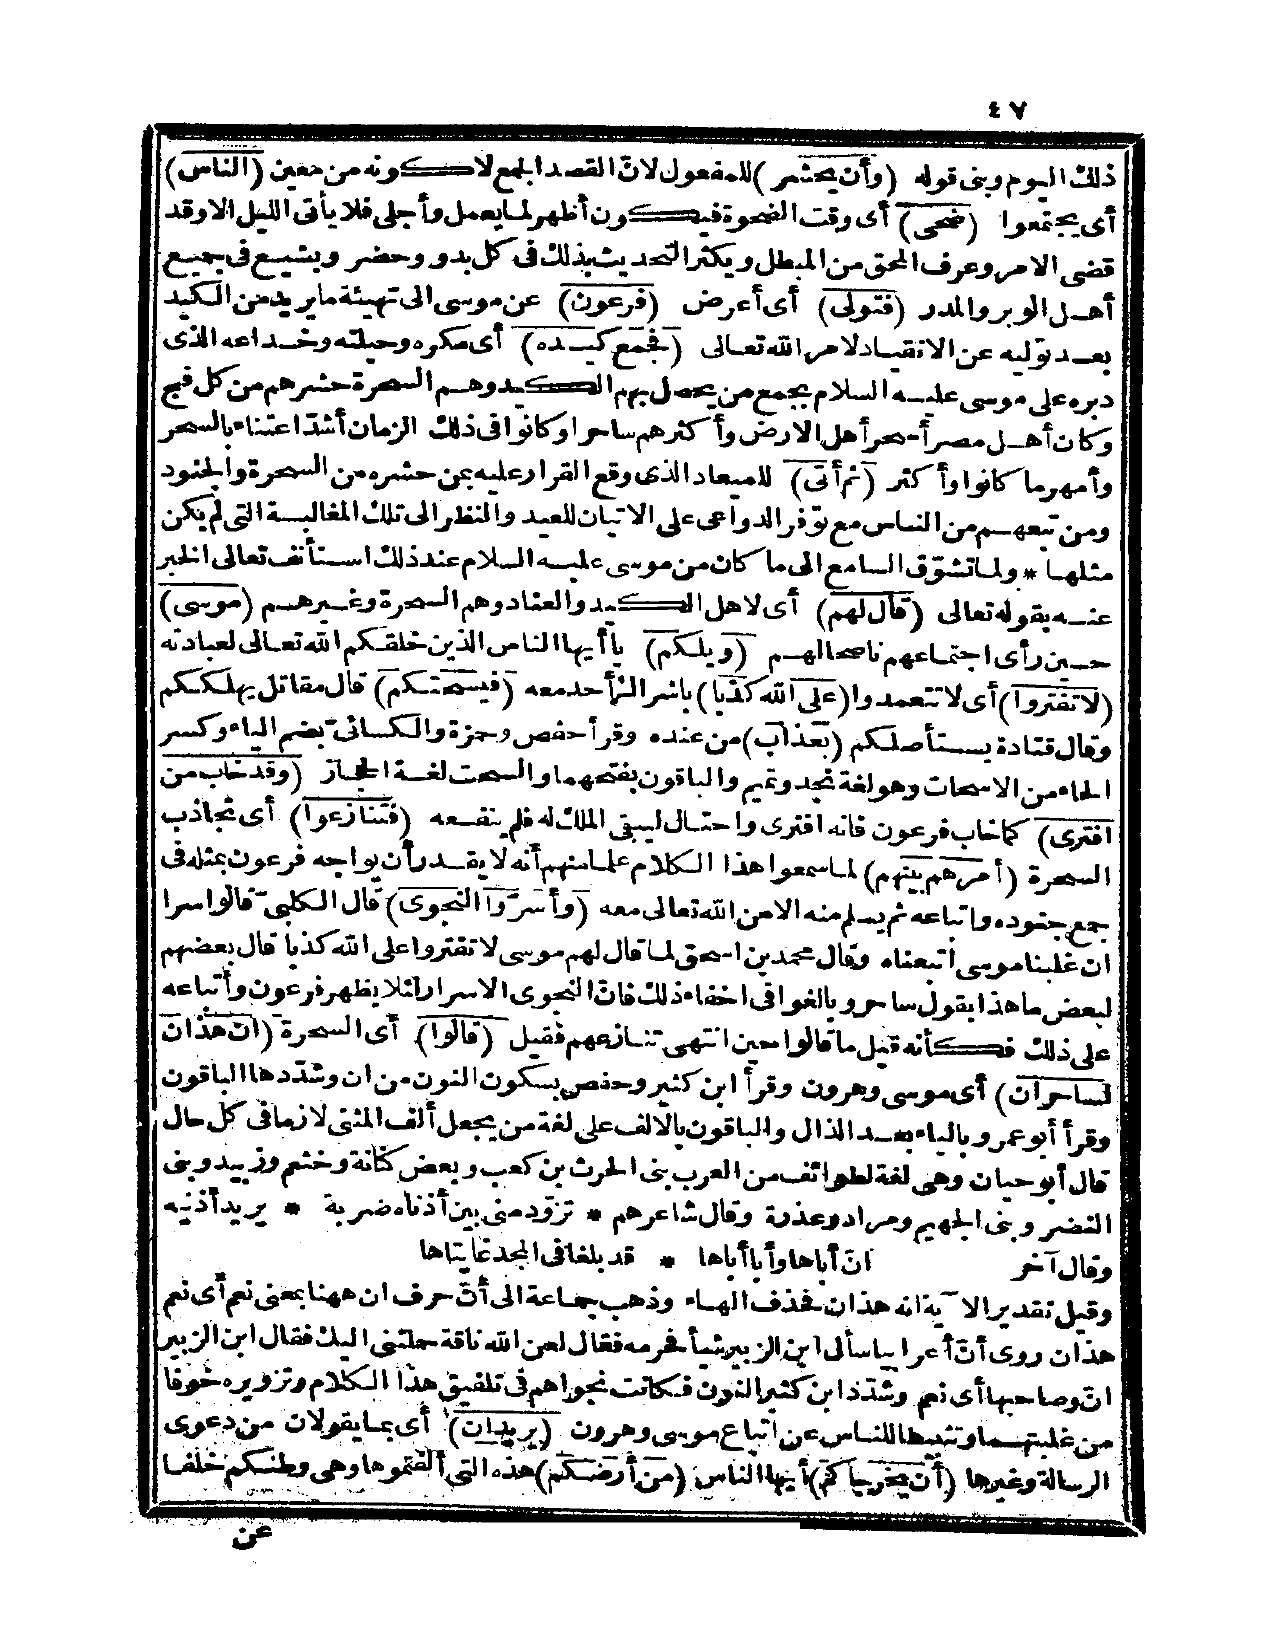 ٤٧
ذلك اليوم وبنى قوله (وأن يحشر) للمفعول لانّ القصد الجمع لا كونه من معين (الناس)
أى يجتمعوا (ضحى) أى وقت الضحوة فيكون أظهر لما يعمل وأجلى فلا يأتى الليل الا وقد
قضى الامر وعرف المحق من المبطل ويكثر التحديث بذلك فى كل بدو وحضر ويشيع فى جميع
أهل الوبر والمدر (فتولى) أى أعرض (فرعون) عن موسى الى تهيئة ما يريد من الكيد
بعد توليه عن الانقياد لامر الله تعالى (فجمع كيده) أى مكره وحيلته وخداعه الذى
دبره على موسى عليه السلام بجمع من يحصل بهم الكيد وهم السحرة حشرهم من كل فج
وكان أهل مصر أسحر أهل الارض وأكثرهم ساحرا وكانوا فى ذلك الزمان أشدّ اعتناء بالسحر
وأمهر ما كانوا وأكثر (ثم أتى) للميعاد الذى وقع القرار عليه بمن حشره من السحرة والجنود
ومن تبعهم من الناس مع توفر الدواعى على الاتيان للعيد والنظر الى تلك المغالبة التى لم يكن
مثلها * ولما تشوّق السامع الى ما كان من موسى عليه السلام عند ذلك استأنف تعالى الخبر
عنه بقوله تعالى (قال لهم) أى لاهل الكيد والعناد وهم السحرة وغيرهم (موسى)
حين رأى اجتماعهم ناصحا لهم (ويلكم) يا أيها الناس الذين خلقكم الله تعالى لعبادته
(لا تفتروا) أى لا تتعمدوا (على الله كذبا) باشراك أحد معه (فيسحتكم) قال مقاتل يهلككم
وقال قتادة يستأصلكم (بعذاب) من عنده وقرأ حفص وحمزة والكسائىّ بضم الياء وكسر
الحاء من الاسحات وهو لغة نجد وتميم والباقون بفتحهما والسحت لغة الحجاز (وقد خاب من
افترى) كما خاب فرعون فانه افترى واحتال ليبقى الملك له فلم ينفعه (فتنازعوا) أى تجاذب
السحرة (أمرهم بينهم) لما سمعوا هذا الكلام علما منهم أنه لا يقدر أن يواجه فرعون بمثله فى
جمع جنوده واتباعه ثم يسلم منه الا من الله تعالى معه (وأسرّوا النجوى) قال الكلبىّ قالوا سرا
ان غلبنا موسى أتبعناه وقال محمد بن اسحق لما قال لهم موسى لا تفتروا على الله كذبا قال بعضهم
لبعض ما هذا بقول ساحر وبالغوا فى اخفاء ذلك فانّ النجوى الاسرار لئلا يظهر فرعون وأتباعه
على ذلك فكأنه قيل ما قالوا حين انتهى تنازعهم فقيل (قالوا) أى السحرة (ان هذان
لساحران) أى موسى وهرون وقرأ ابن كثير وحفص بسكون النون من ان وشدّدها الباقون
وقرأ أبو عمرو بالياء بعد الذال والباقون بالالف على لغة من يجعل ألف المثنى لازما فى كل حال
قال أبو حيان وهى لغة لطوائف من العرب بنى الحرث بن كعب وبعض كنانة وخثعم وزبيد وبنى
النضر وبنى الجهيم ومراد وعذرة وقال شاعرهم * تزوّد منى بين أذناه ضربة * يريد أذنيه
وقال آخر انّ أباها وأبا أباها * قد بلغا فى المجد غايتاها
وقيل تقدير الآية انه هذان فحذف الهاء وذهب جماعة الى أنّ حرف ان ههنا بمعنى نعم أى نعم
هذان روى أنّ أعرابيا سأل ابن الزبير شيأ فحرمه فقال لعن الله ناقة حملتنى اليك فقال ابن الزبير
انّ وصاحبها أى نعم وشدّد ابن كثير النون فكانت نجواهم فى تلفيق هذا الكلام وتزويره خوفا
من غلبتهما وتثبيطا للناس عن اتباع موسى وهرون (يريدان) أى بما يقولان من دعوى
الرسالة وغيرها (أن يخرجاكم) أيها الناس (من أرضكم) هذه التى ألفتموها وهى وطنكم خلفا
عن